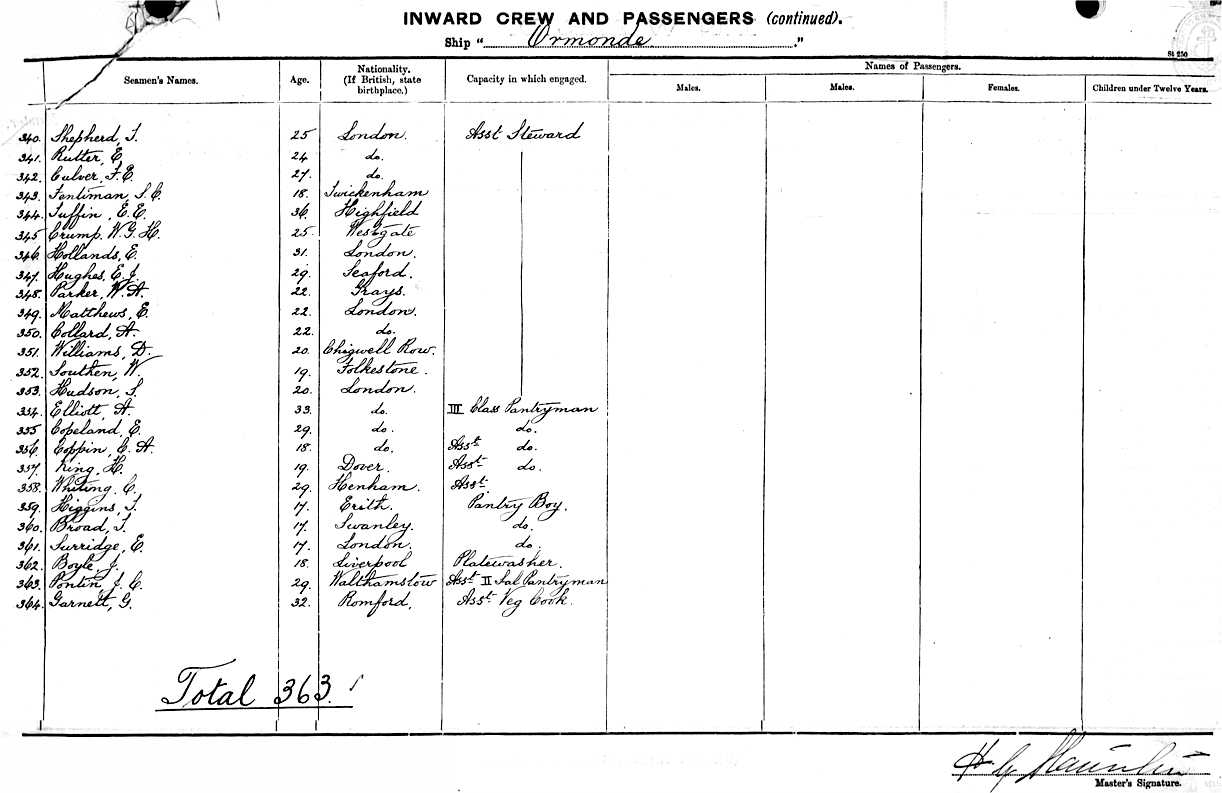 INWARD CREW AND PASSENGERS (continued).
Ship "Ormonde."
St 250
Names of Passengers.
Seamen's Names. Age. Nationality. (If British, state birthplace.) Capacity in which engaged. Males. Males. Females. Children under Twelve Years.
340. Shepherd, T. 25 London. Asst Steward
341. Rutter, E. 24 do.
342. Culver, F.E. 27. do.
343. Fentiman, S.C. 18. Twickenham
344. Tuffin, E.E. 36. Highfield
345 Crump, W.G.H. 25. Westgate
346. Hollands, E. 31. London.
347. Hughes, E.J. 29. Seaford.
348. Parker, W.A. 22. Grays.
349. Matthews, E. 22. London.
350. Collard, A. 22. do.
351. Williams, D. 20. Chigwell Row.
352. Southen, W. 19. Folkestone.
353. Hudson, T. 20. London.
354. Elliott, A. 33. do. III Class Pantryman
355 Copeland, E. 29. do. do.
356. Coppin, C.A. 18. do. Asst do.
357. King, H. 19. Dover. Asst do.
358. Whiting, C. 29. Henham. Asst
359. Higgins, T. 17. Erith. Pantry Boy.
360. Broad, T. 17. Swanley. do.
361. Surridge, E. 17. London. do.
362. Boyle, J. 18. Liverpool Platewasher.
363. Pontin, J.C. 29. Walthamstow Asst II Sal Pantryman
364. Garnett, G. 32. Romford. Asst Veg Cook.
Total 363.
Master's Signature.